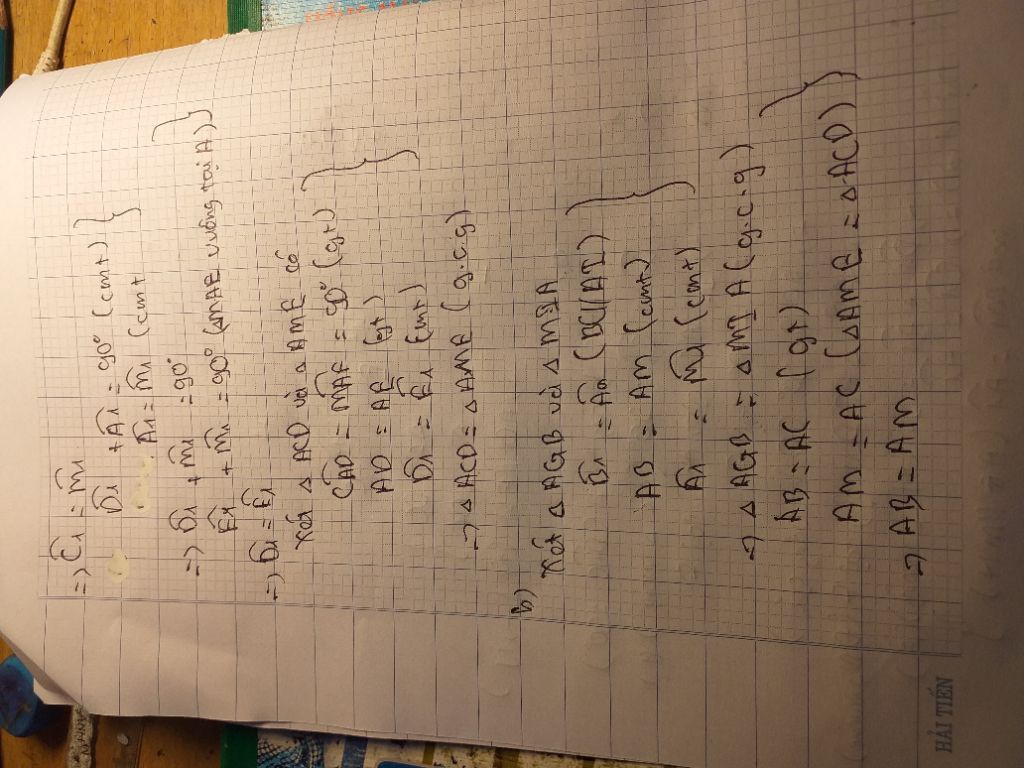 => Ĉ1 = M̂1
D̂1 + Â1 = 90° (cmt)
Â1 = M̂1 (cmt
=> D̂1 + M̂1 = 90°
Ê1 + M̂1 = 90° (ΔMAE vuông tại A)
=> D̂1 = Ê1
Xét Δ ACD và Δ AME có
CÂD = MÂE = 90° (gt)
AD = AE (gt)
D̂1 = Ê1 (cmt)
=> Δ ACD = Δ AME (g.c.g)
b)
Xét Δ AGB và Δ MIA
B̂1 = (BC//AI)
AB = AM (cmt)
Â1 = M̂1 (cmt)
=> Δ AGB = Δ MIA (g.c.g)
AB = AC (gt)
AM = AC (ΔAME = ΔACD)
=> AB = AM
HẢI TIẾN